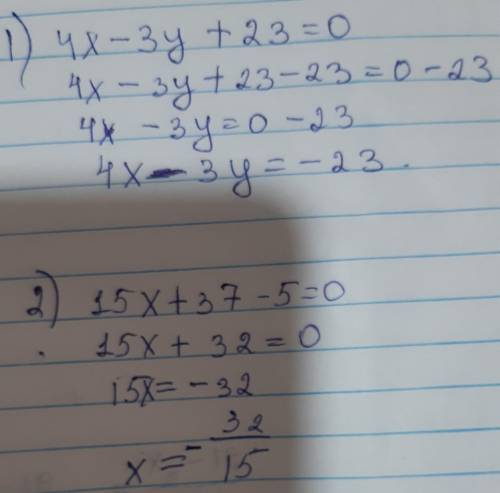 1) 4x - 3y + 23 = 0
4x - 3y + 23 - 23 = 0 - 23
4x - 3y = 0 - 23
4x - 3y = - 23.
2) 15x + 37 - 5 = 0
. 15x + 32 = 0
15x = - 32
x = - 32/15